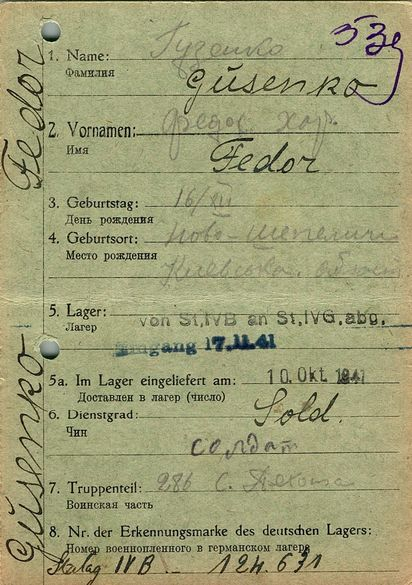 53
1. Name: Гузенко
Фамилия Güsenko
2. Vornamen: Федор Хар.
Имя Fedor
3. Geburtstag: 16/XII
День рождения
4. Geburtsort: Ново-Шепеличи
Место рождения Киевськоі області
5. Lager: von St.IVB an St.IVG.abg.
Лагер
Eingang 17.11.41
5a. Im Lager eingeliefert am: 10. Okt. 1941
Доставлен в лагер (число)
6. Dienstgrad: Sold.
Чин солдат
7. Truppenteil: 286 с.
Воинская часть
8. Nr. der Erkennungsmarke des deutschen Lagers:
Номер военнопленного в германском лагере
Stalag IVB - 124631
Güsenko Fedor